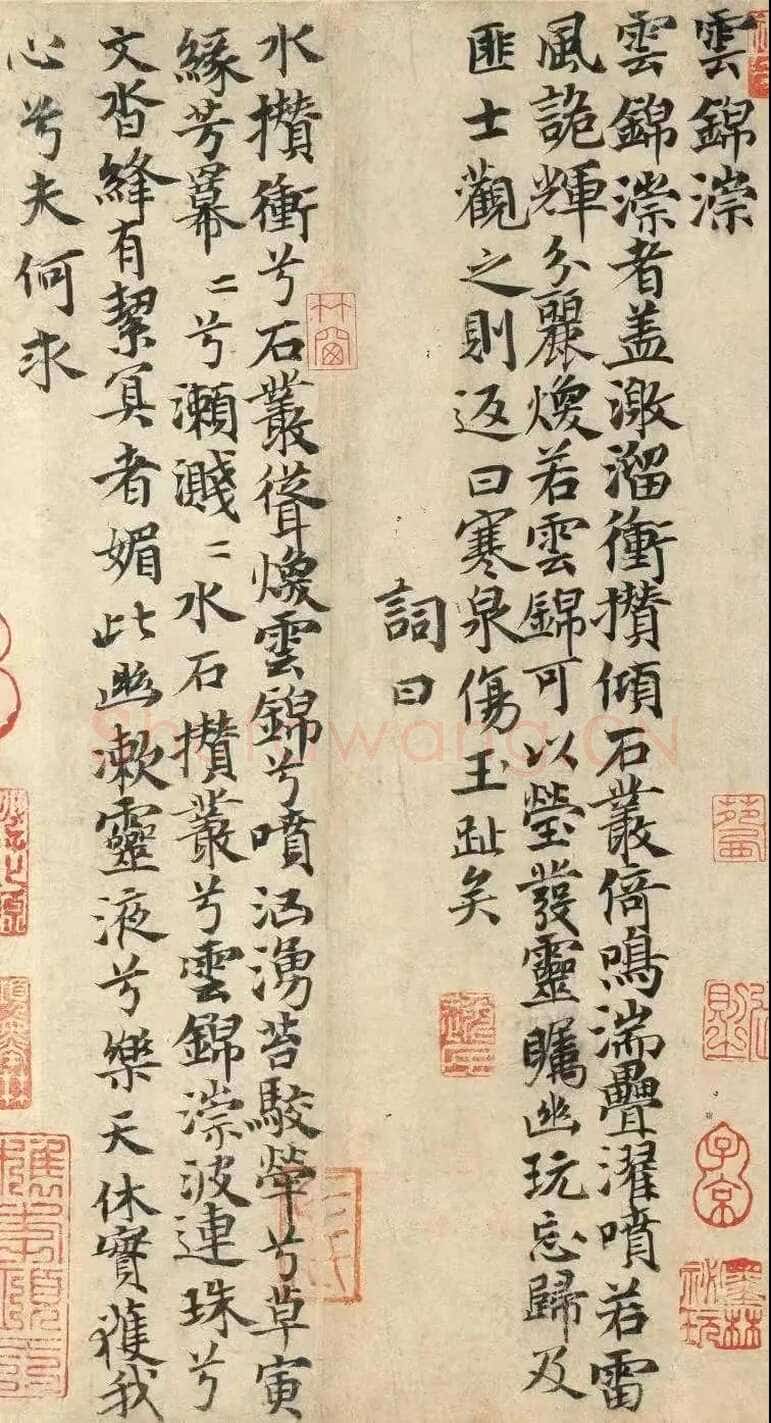 雲錦淙
雲錦淙者盖激溜衝攢傾石叢倚鳴湍疊濯噴若雷
風詭輝分麗煥若雲錦可以瑩發靈矚幽玩忘歸及
匪士觀之則返曰寒泉傷玉趾矣
詞曰
水攢衝兮石叢聳煥雲錦兮噴洶湧苔駮犖兮草夤
緣芳冪〻兮瀨濺〻水石攢叢兮雲錦淙波連珠兮
文沓縫有絜冥者媚此幽漱靈液兮樂天休實獲我
心兮夫何求
子京